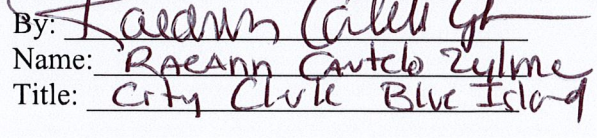 By:
Name: RAEANN Cantelo Zylma
Title: City Clerk Blue Island